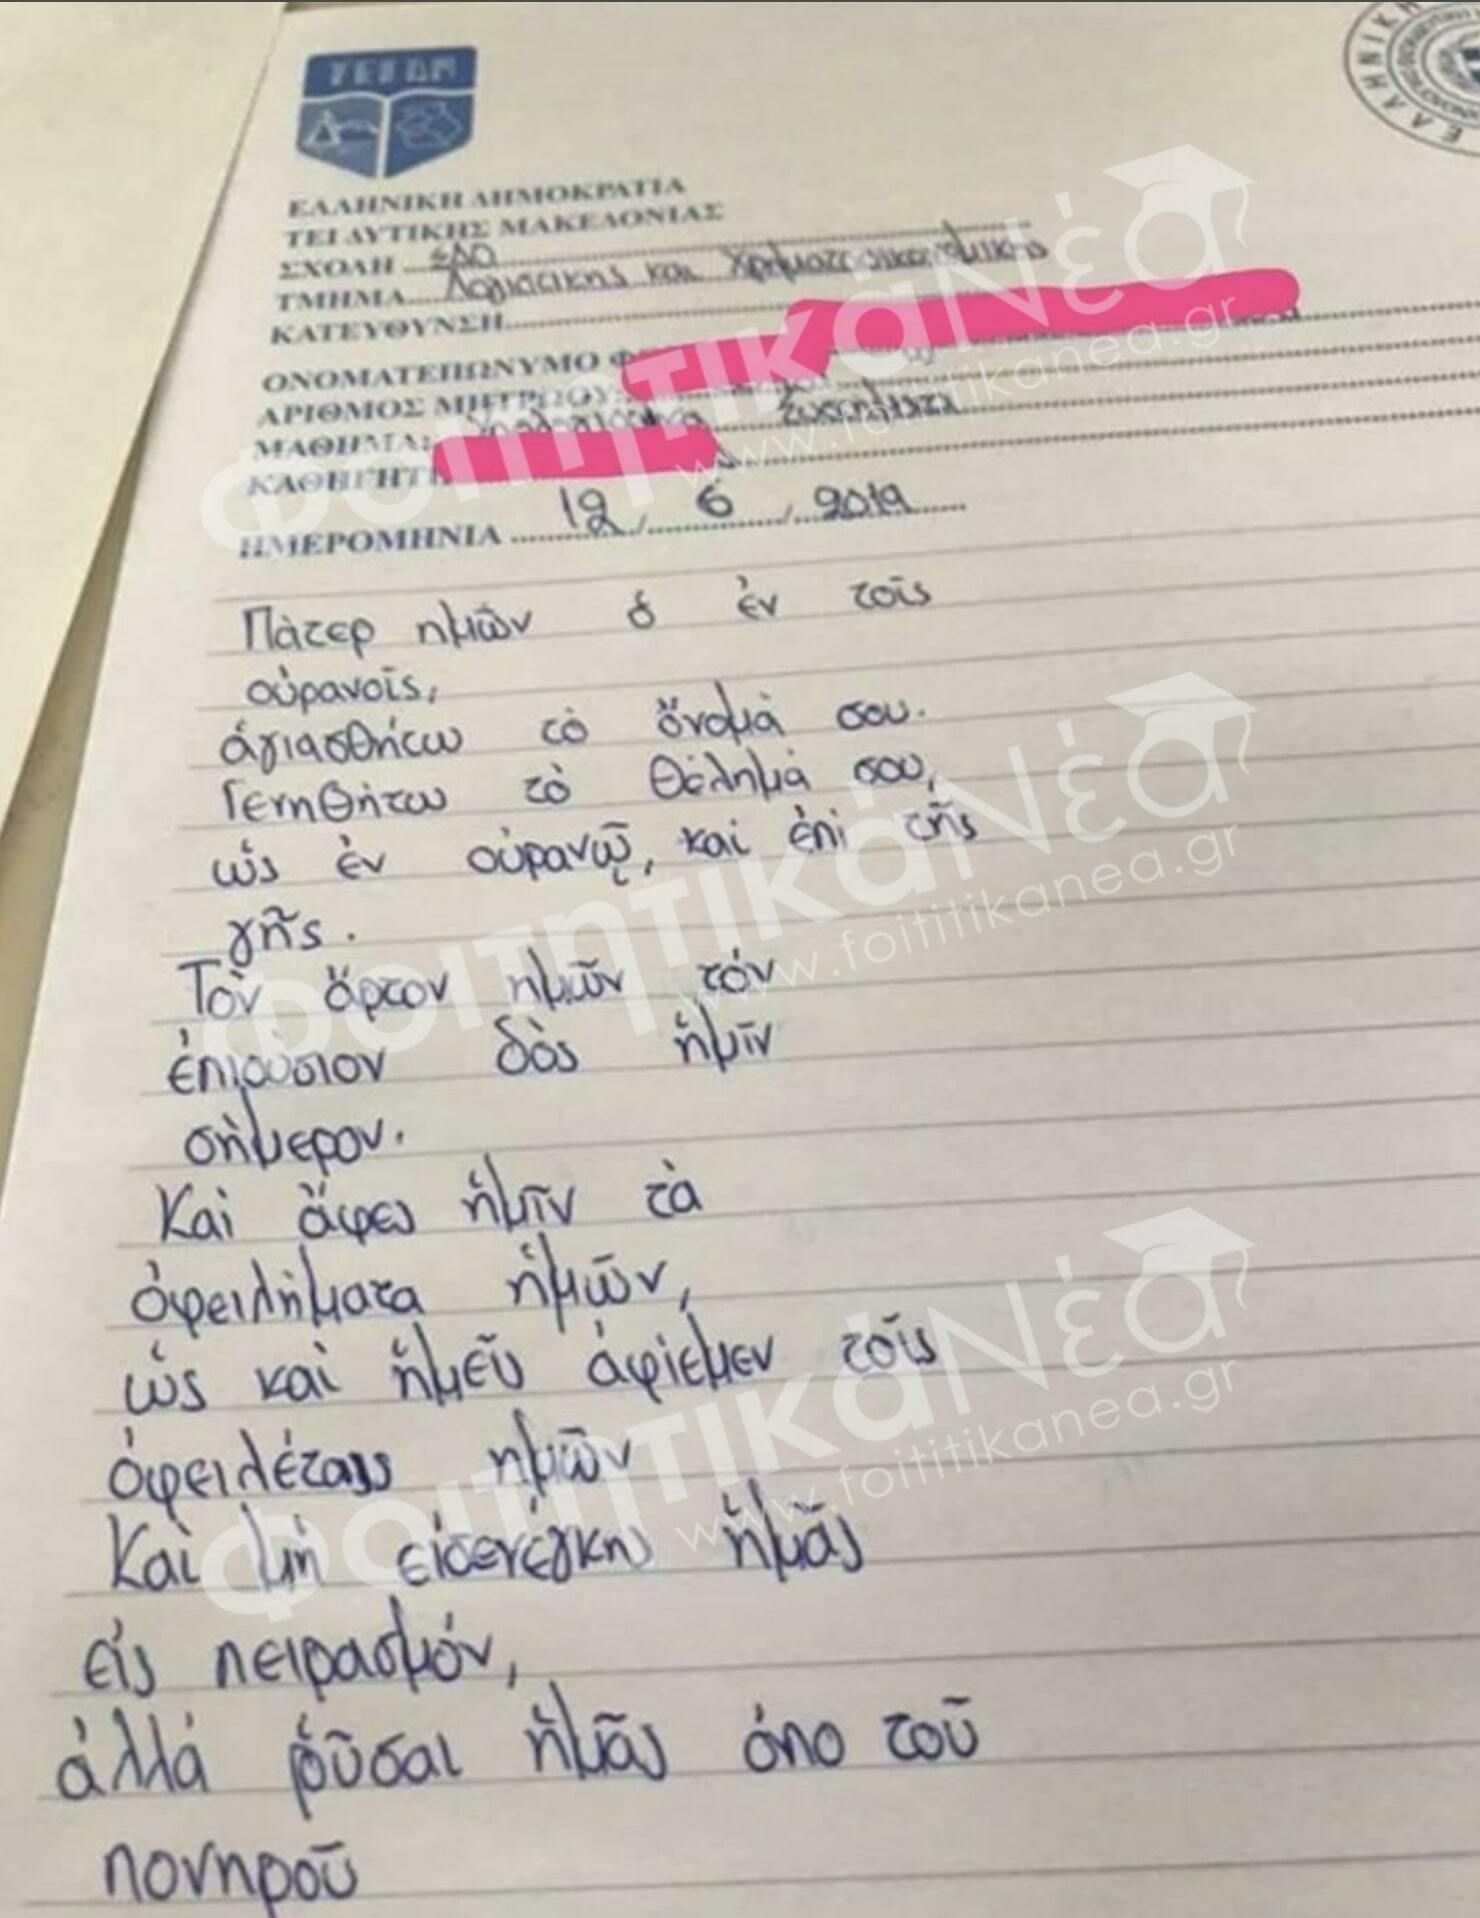 ΤΕΙ ΔΜ
ΕΛΛΗΝΙΚΗ
ΕΛΛΗΝΙΚΗ ΔΗΜΟΚΡΑΤΙΑ
ΤΕΙ ΔΥΤΙΚΗΣ ΜΑΚΕΔΟΝΙΑΣ
ΣΧΟΛΗ ΣΔΟ
ΤΜΗΜΑ Λογιστικης και Χρηματοοικονομικης
ΚΑΤΕΥΘΥΝΣΗ
ΟΝΟΜΑΤΕΠΩΝΥΜΟ Φ
ΑΡΙΘΜΟΣ ΜΗΤΡΩΟΥ:
ΜΑΘΗΜΑ: Συστήματα
ΚΑΘΗΓΗΤ
ΗΜΕΡΟΜΗΝΙΑ 12 / 6 / 2019
Πὰτερ ημῶν ὁ ἐν τοῖς
οὐρανοῖς,
ἁγιασθήτω τὸ ὄνομὰ σου.
Γενηθήτω τὸ θέλημά σου,
ὡς ἐν οὐρανῷ, καὶ ἐπὶ τῆς
γῆς.
Τὸν ἄρτον ημῶν τόν
ἐπιούσιον δὸς ἡμῖν
σὴμερον.
Καὶ ἄφες ἡμῖν τὰ
ὀφειλήματα ἡμῶν,
ὡς καὶ ἡμεῖς ἀφίεμεν τοῖς
ὀφειλέταις ημῶν
Καὶ μὴ εἰσενέγκης ἡμᾶς
εἰς πειρασμόν,
ἀλλά ῥῦσαι ἡμᾶς ἀπο τοῦ
πονηροῦ
ΦοιτητικάΝέα
www.foititikanea.gr
ΦοιτητικάΝέα
www.foititikanea.gr
ΦοιτητικάΝέα
www.foititikanea.gr